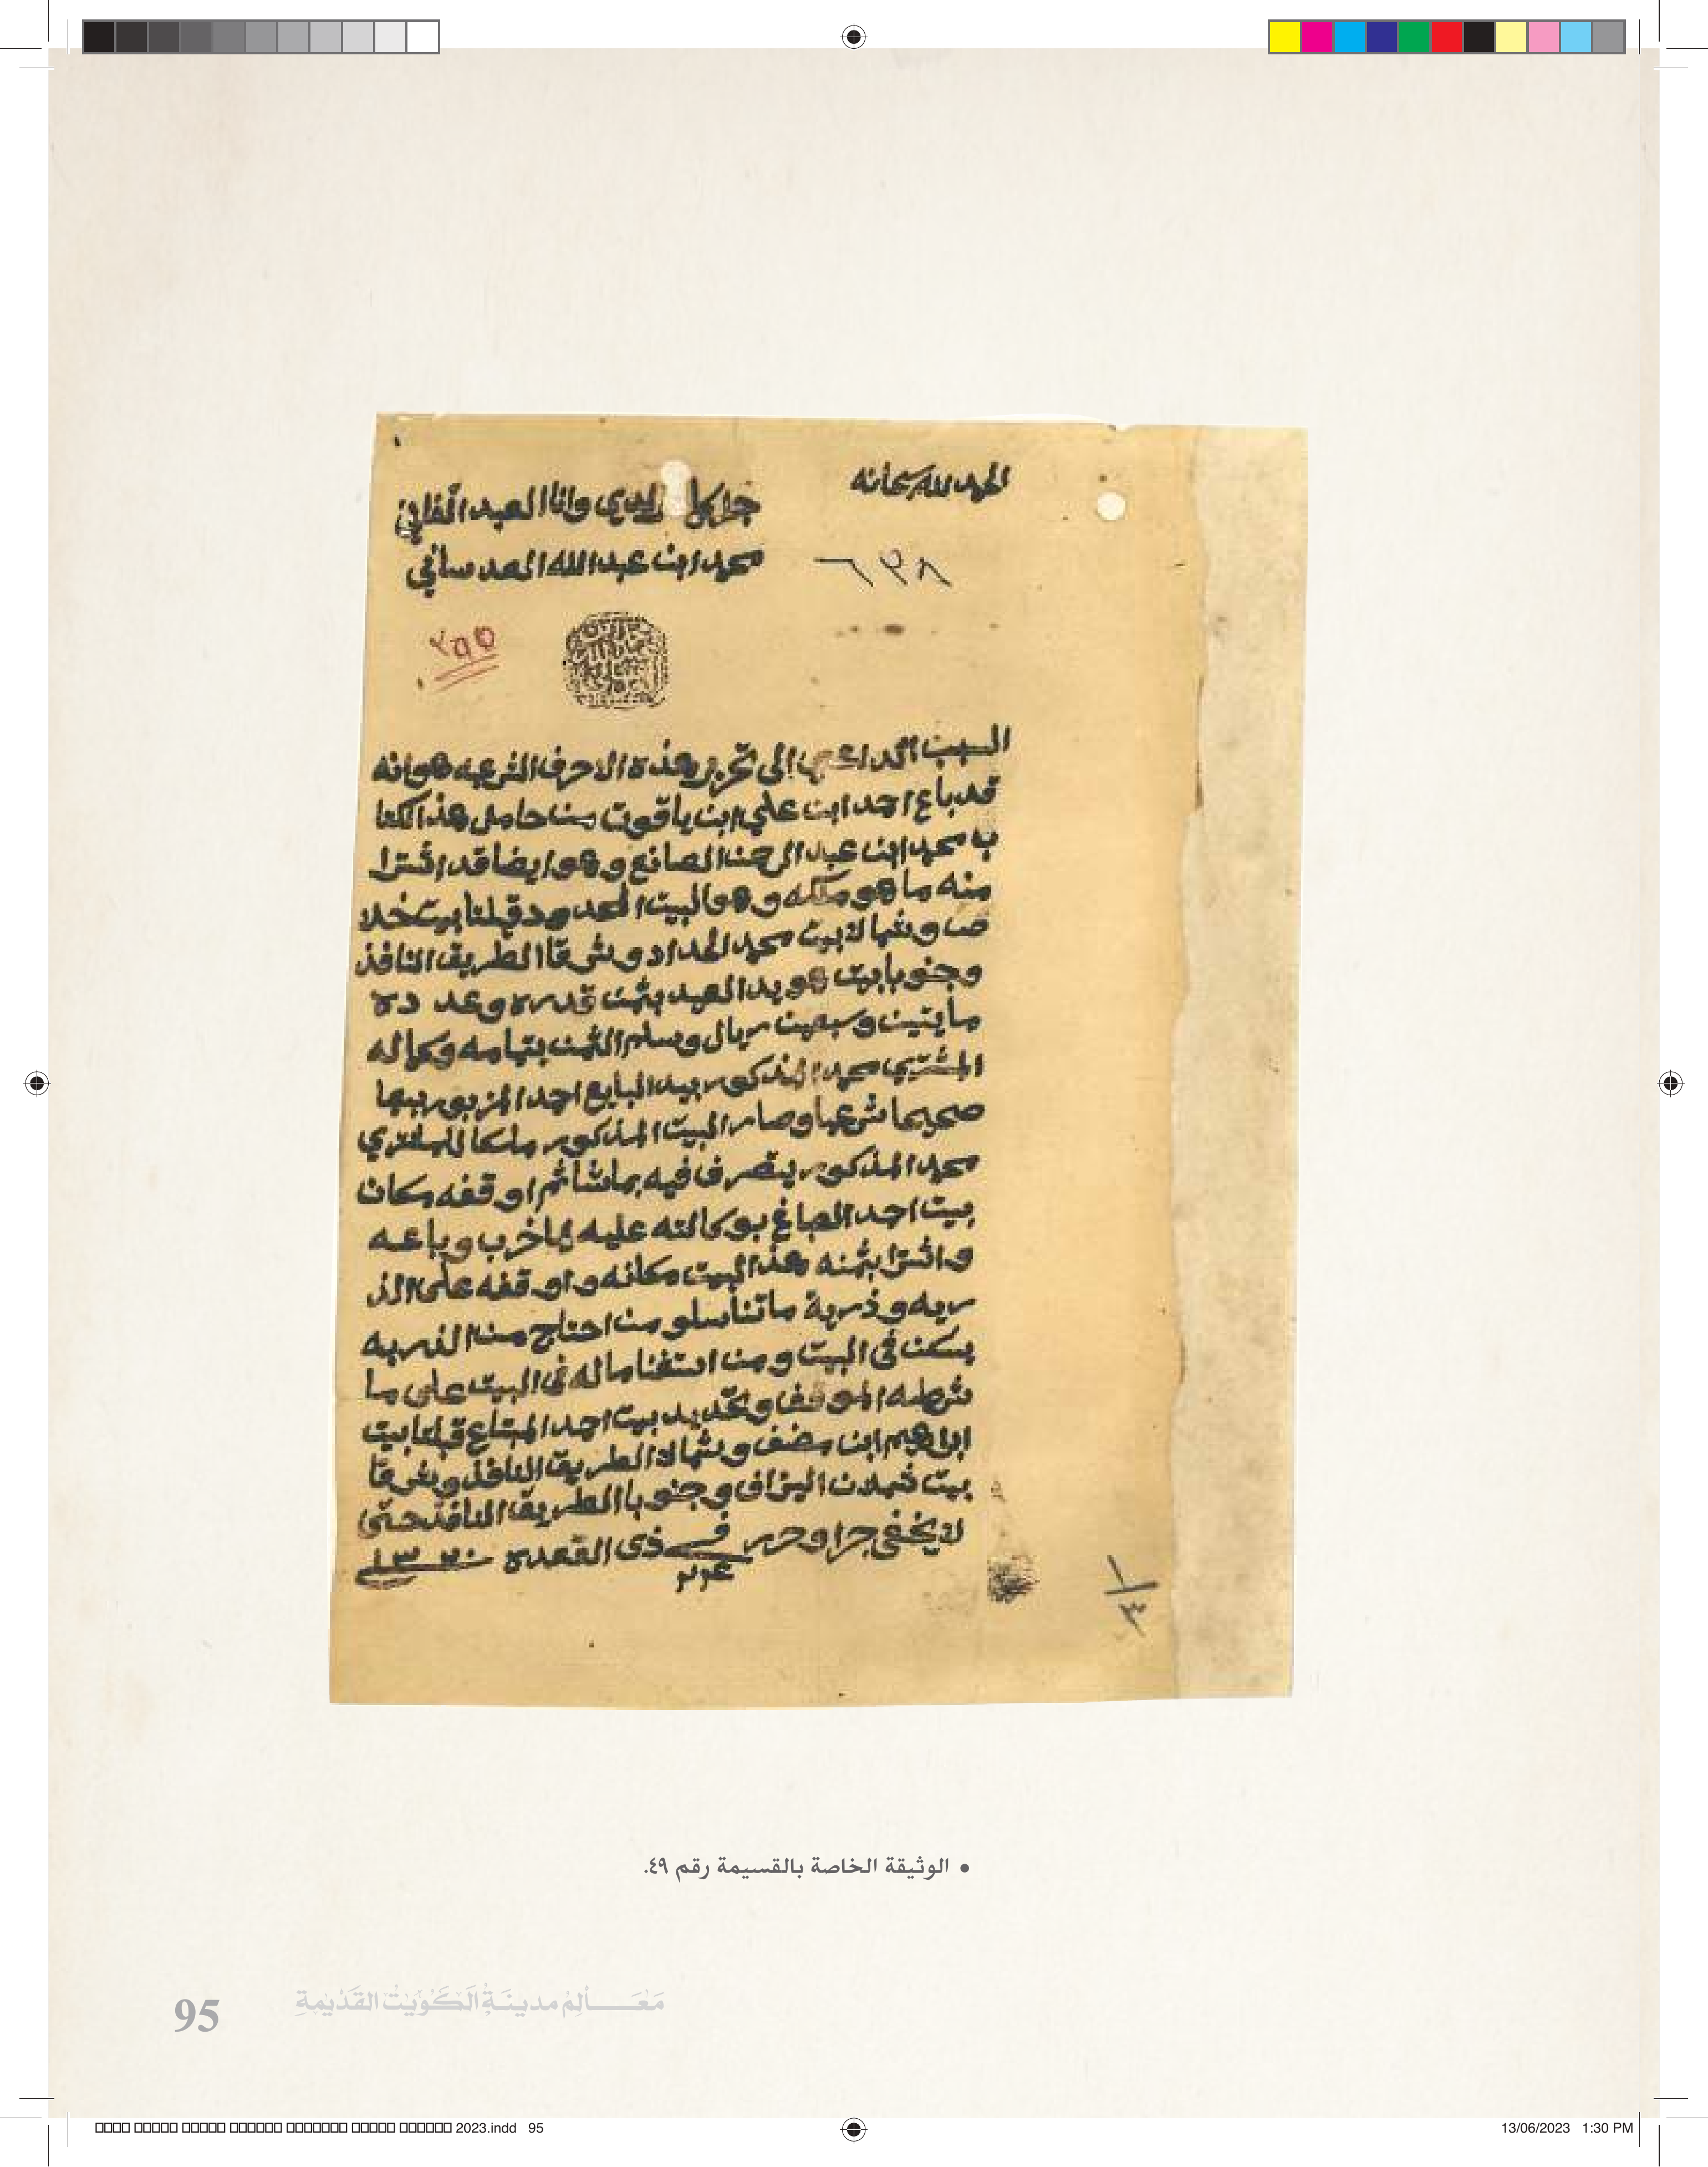 الحمد لله سبحانه
جرا كما لدي وانا العبد الفاني
محمد ابن عبدالله العدساني
٦٣٨
٢٩٥
السبب الداعي الى تحرير هذه الاحرف الشرعيه هو انه
قد باع احمد ابن علي ابن ياقوت من حامل هذا الكتا
ب محمد ابن عبد الرحمن الصانع وهو ايضا قد اشترا
منه ما هو ملكه وهو البيت المحدود قبلتا بيت خلا
ص وشمالا بيت محمد الحداد وشرقا الطريق النافذ
وجنوبا بيت هويد العبيد بثمن قدره وعدده
مايتين وسبعين ريال وسلم الثمن بتمامه وكماله
المشتري محمد المذكور بيد البايع احمد المزبور بيعا
صحيحا شرعيا وصار البيت المذكور ملكا للمشتري
محمد المذكور يتصرف فيه بما شا ثم اوقفه مكان
بيت احمد الصايغ بوكالته عليه لما خرب وباعه
واشترا بثمنه هذا البيت مكانه واوقفه على الذ
ريه وذرية ما تناسلو من احتاج من الذريه
يسكن في البيت ومن استغنا ماله في البيت على ما
شرطه الموقف وتحديد بيت احمد المبتاع قبلتا بيت
ابراهيم ابن مضف وشمالا الطريق النافذ وشرقا
بيت شملان البزاف وجنوبا الطريق النافذ حتى
لا يخفى جرا وحرر في ٢٤ ذي القعده ١٣٣٠
١/٣
• الوثيقة الخاصة بالقسيمة رقم ٤٩.
مَعَالِمُ مدينَةِ الكُوَيْتِ القَدْيمَةِ
95
2023.indd 95
13/06/2023 1:30 PM